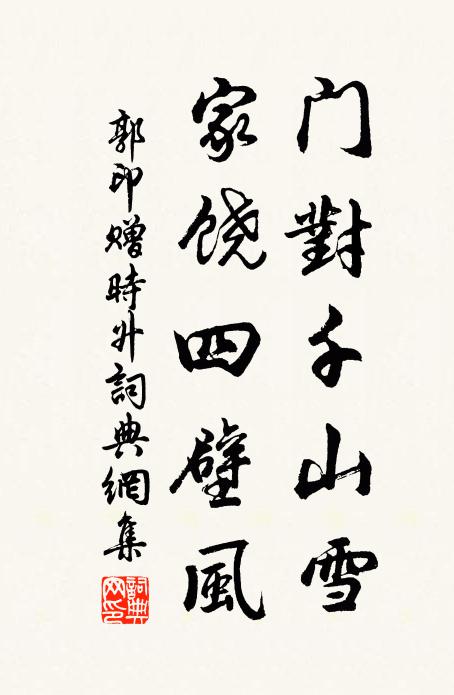 门對千山雪
家饶四壁風
郭印赠時升詞典網集
詞典網印